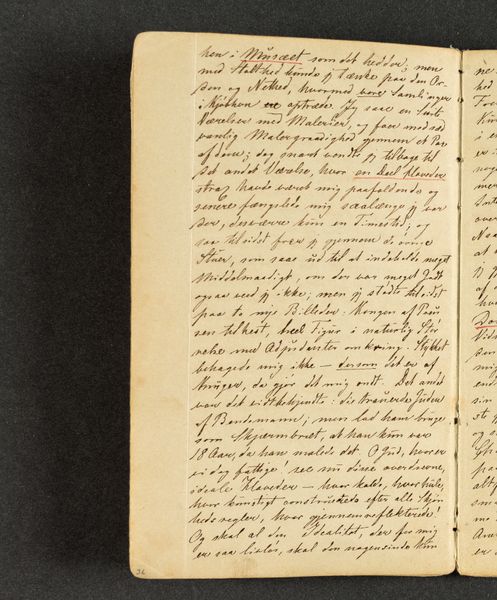 hen i Musæet som det hedder; men
med Stolthed kunde jeg tænke paa den Or-
den og Nethed, hvormed vore Samlinger
i Kjøbhvn er opstillede. Jeg saae en Suite
Værelser med Malerier, og foer med sæd
vanlig Malergraadighed gjennem et Par
af dem; dog snart vendte jeg tilbage til
det andet Værelse, hvor en Deel Hoveder
strax havde været mig paafaldende og
senere fængslede mig saalænge jeg var
der, desværre kun en Timestid; og
saa tilsidst foer jeg gjennem de øvrige
Stuer, som saae ud til at indeholde meget
Middelmaadigt, om der var meget Godt
ogsaa veed jeg ikke; men jeg stødte tilsidst
paa to nye Billeder: Kongen af Preus
sen tilhest, heel Figur i naturlig Stør
relse med Adjudanter omkring. Stykket
behagede mig ikke — dersom det er af
Krüger, da gjør det mig ondt. Det andet
var det vidtbekjendte: die trauernde Juden
af Bendemann; men lad ham bruge
som Skjermbret, at han kun var
18 Aar, da han malede det. O Gud, hvor er
vi dog fattige! see nu disse
ideale Hoveder — hvor kolde, hvor hule,
hvor kunstigt construerede efter alle Skjøn
hedsregler, hvor gjennemreflekterede!
Og skal al den Idealitet, der for mig
er saa livløs, skal den nogensinde
36